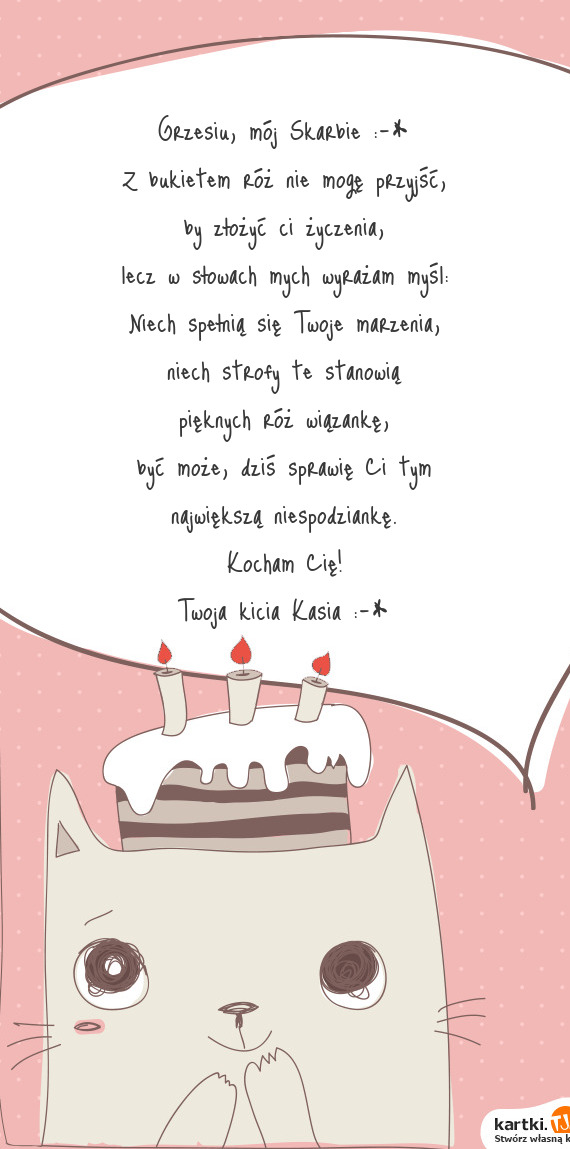 Grzesiu, mój Skarbie :-*
Z bukietem róż nie mogę przyjść,
by złożyć ci życzenia,
lecz w słowach mych wyrażam myśl:
Niech spełnią się Twoje marzenia,
niech strofy te stanowią
pięknych róż wiązankę,
być może, dziś sprawię Ci tym
największą niespodziankę.
Kocham Cię!
Twoja kicia Kasia :-*
kartki.TJ
Stwórz własną k